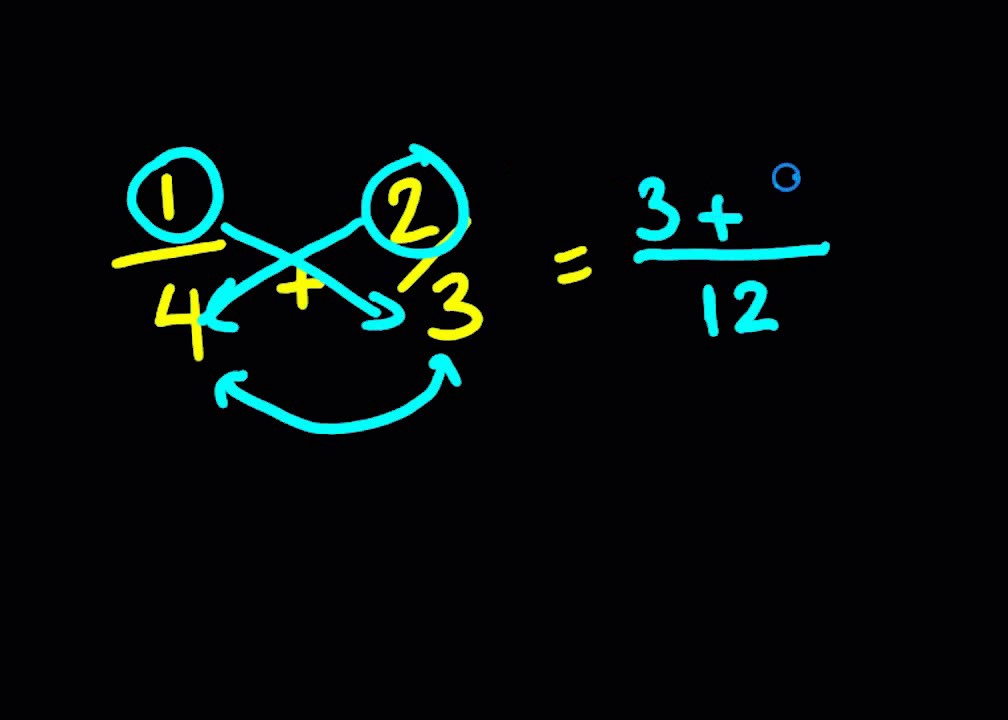 1/4 + 2/3 = (3 +)/12